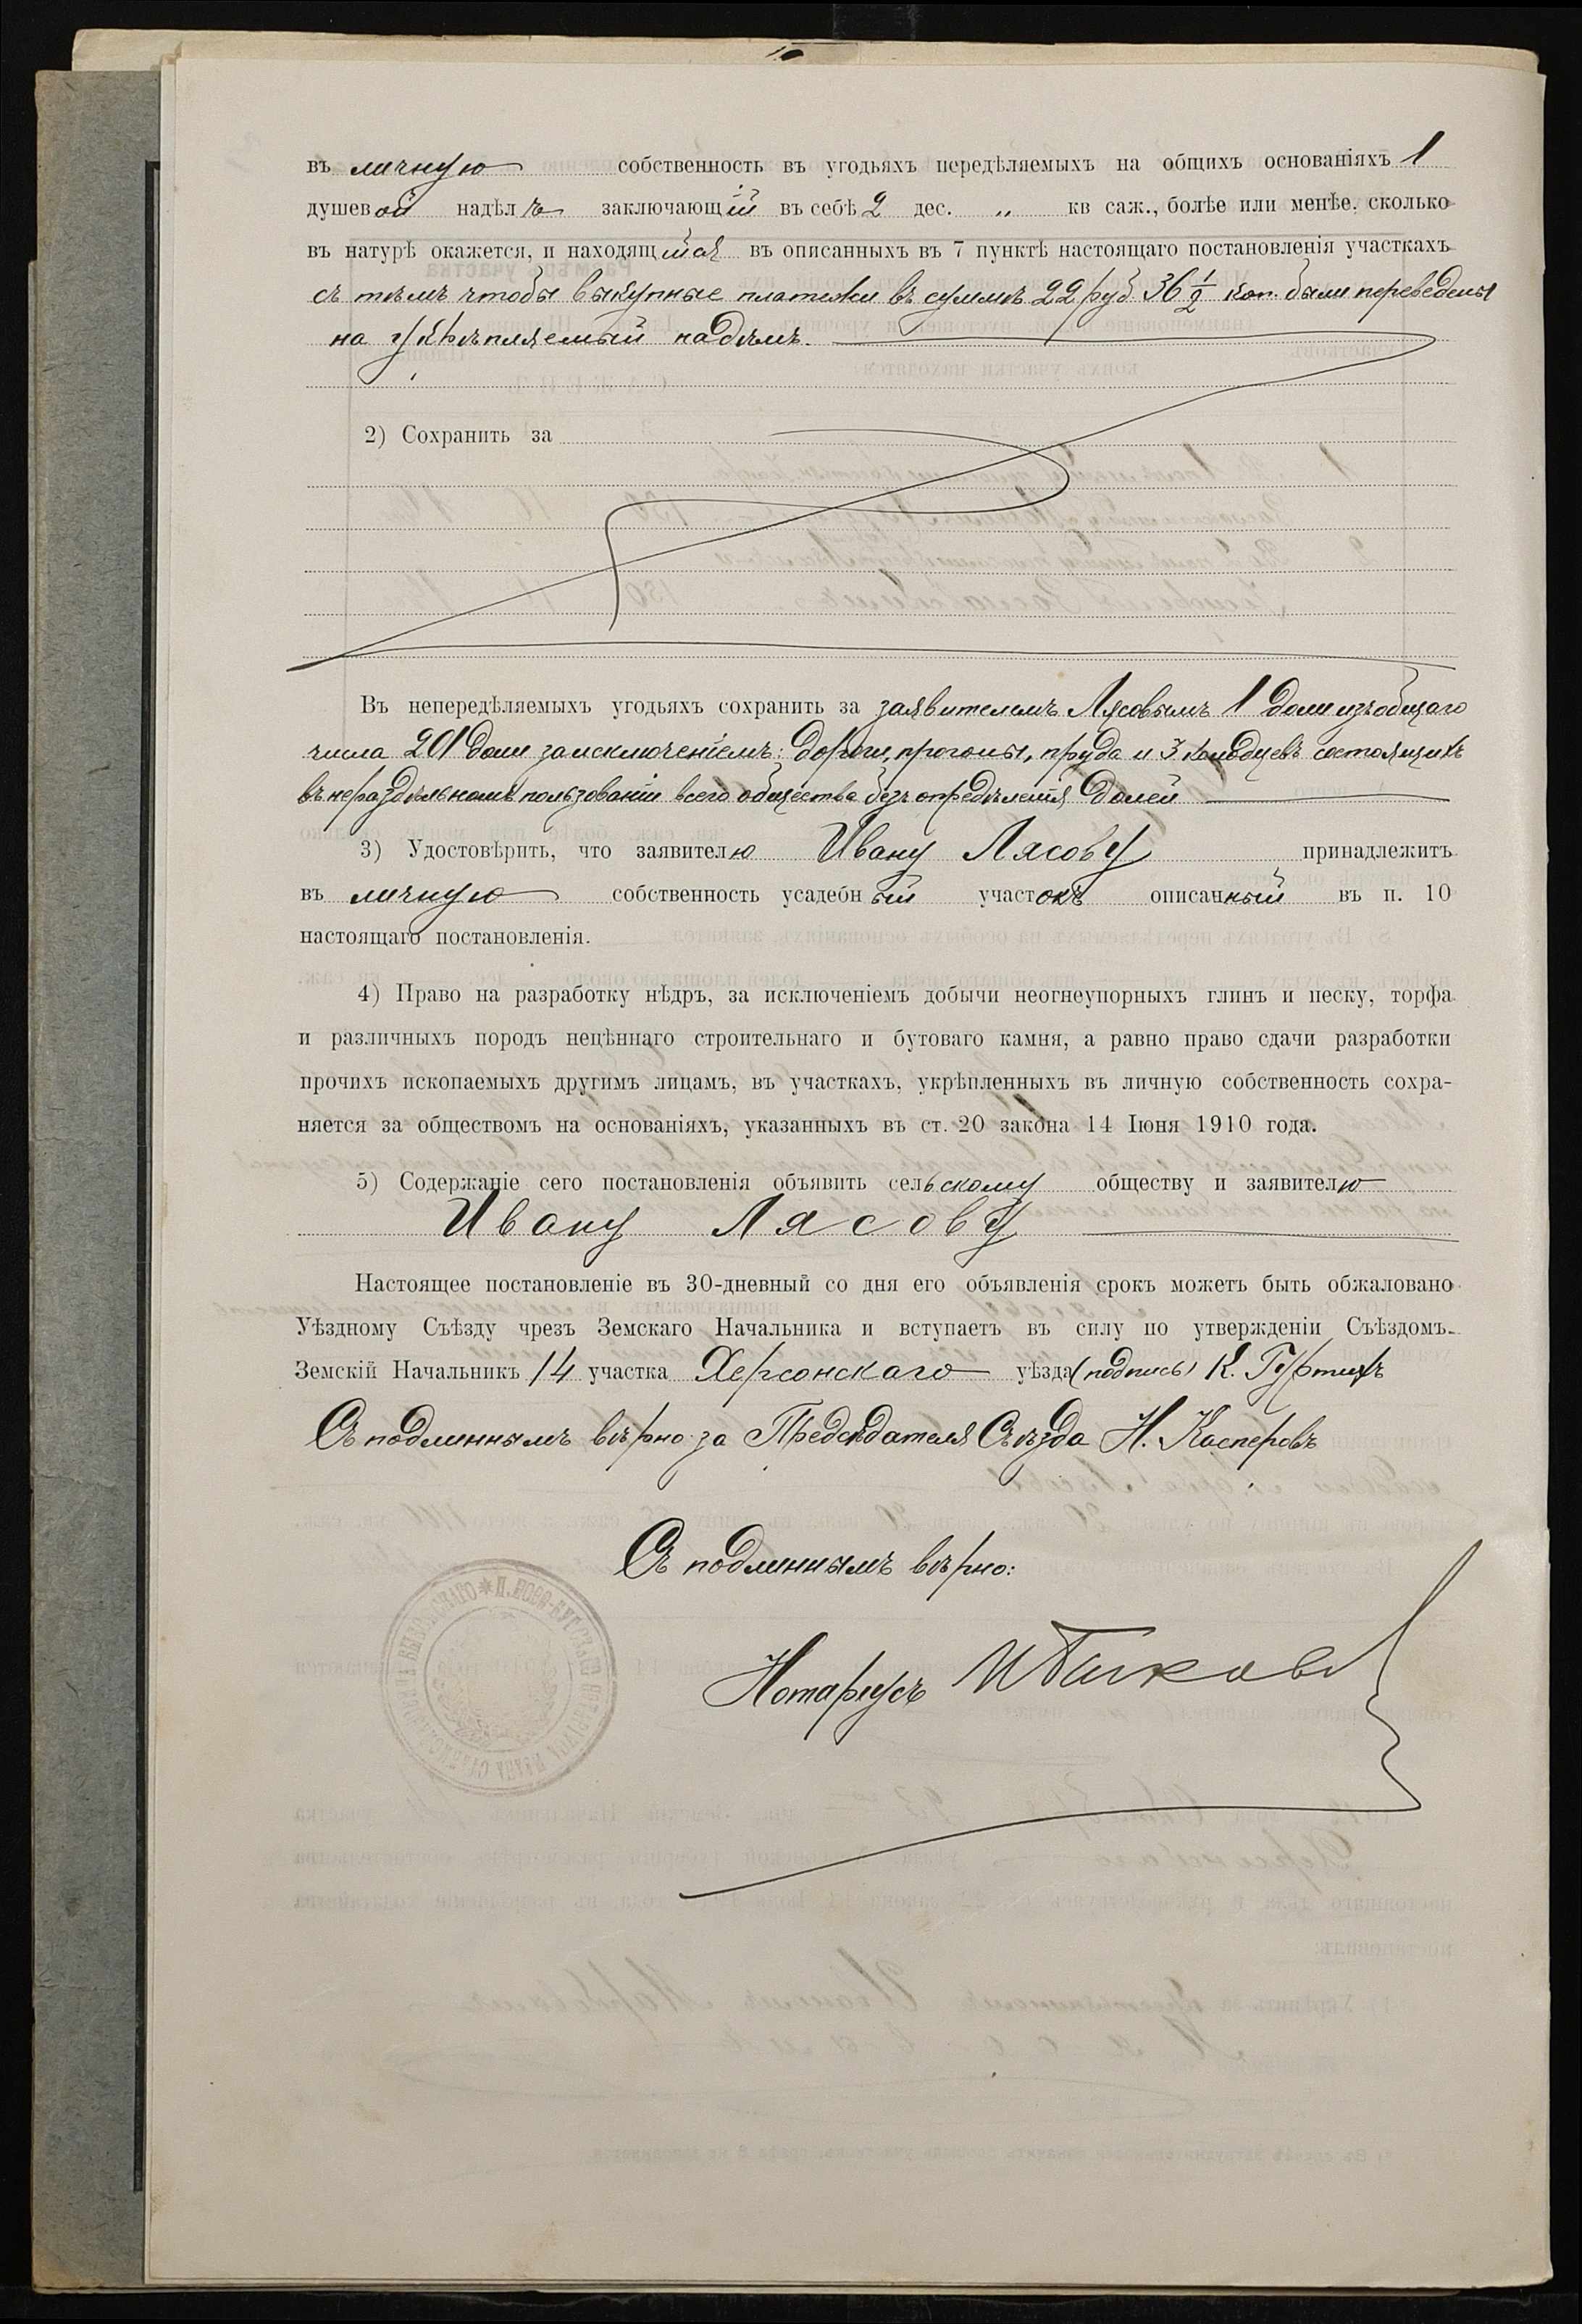 въ личную собственность въ угодьяхъ передѣляемыхъ на общихъ основаніяхъ 1
душевой надѣлъ заключающій въ себѣ 2 дес. „ кв саж., болѣе или менѣе, сколько
въ натурѣ окажется, и находящійся въ описанныхъ въ 7 пунктѣ настоящаго постановленія участкахъ
съ тѣмъ чтобы выкупные платежи въ суммѣ 22 руб. 36 1/2 коп. были переведены
на укрѣпляемый надѣлъ.
2) Сохранить за
Въ непередѣляемыхъ угодьяхъ сохранить за заявителемъ Лясовымъ 1 доли изъ общаго
числа 201 доли за исключеніемъ: дороги, прогоны, пруда и 3 колодцевъ состоящихъ
въ нераздѣльномъ пользованіи всего общества безъ опредѣленія долей
3) Удостовѣрить, что заявителю Ивану Лясову принадлежитъ
въ личную собственность усадебный участокъ описанный въ п. 10
настоящаго постановленія.
4) Право на разработку нѣдръ, за исключеніемъ добычи неогнеупорныхъ глинъ и песку, торфа
и различныхъ породъ нецѣннаго строительнаго и бутоваго камня, а равно право сдачи разработки
прочихъ ископаемыхъ другимъ лицамъ, въ участкахъ, укрѣпленныхъ въ личную собственность сохра-
няется за обществомъ на основаніяхъ, указанныхъ въ ст. 20 закона 14 Іюня 1910 года.
5) Содержаніе сего постановленія объявить сельскому обществу и заявителю
Ивану Лясову
Настоящее постановленіе въ 30-дневный со дня его объявленія срокъ можетъ быть обжаловано
Уѣздному Съѣзду чрезъ Земскаго Начальника и вступаетъ въ силу по утвержденіи Съѣздомъ.
Земскій Начальникъ 14 участка Херсонскаго уѣзда (подпись) К. Гуртихъ
Съ подлиннымъ вѣрно: за Предсѣдателя Съѣзда Н. Касперовъ
Съ подлиннымъ вѣрно:
Нотаріусъ